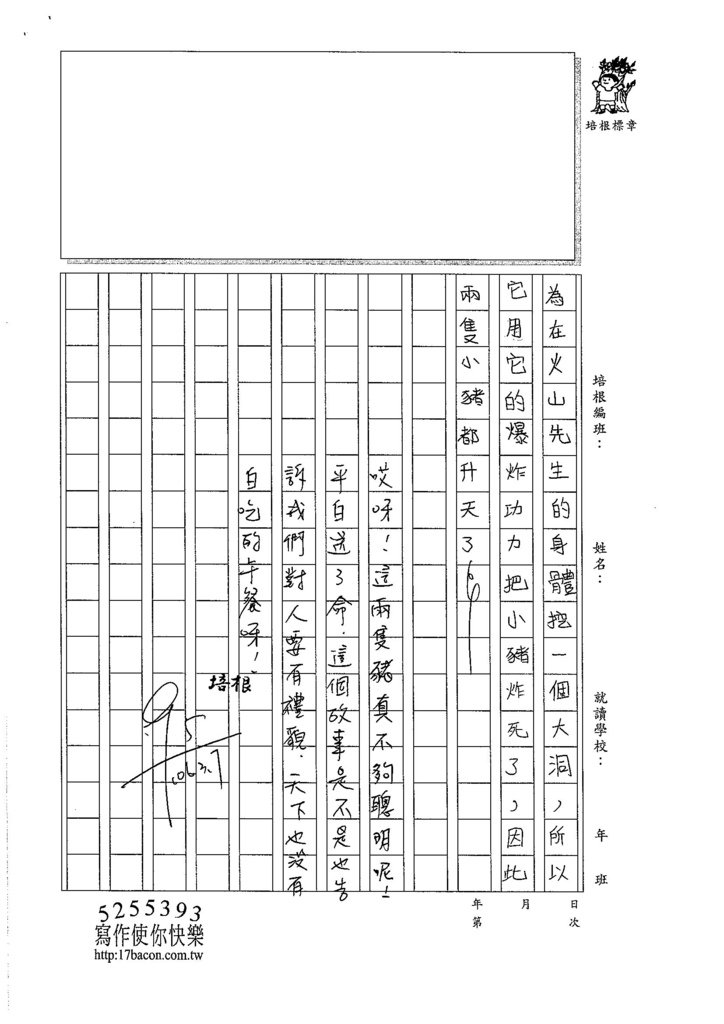 培根標章
培根編班：
姓名：
就讀學校：
年
班
為在火山先生的身體挖一個大洞，所以
它用它的爆炸功力把小豬炸死了，因此
兩隻小豬都升天了
哎呀！這兩隻豬真不夠聰明呢！
平白送了命．這個故事是不是也告
訴我們對人要有禮貌．天下也沒有
白吃的午餐呀！
培根
95
106.3.7
日
次
月
年
第
5255393
寫作使你快樂
http:17bacon.com.tw